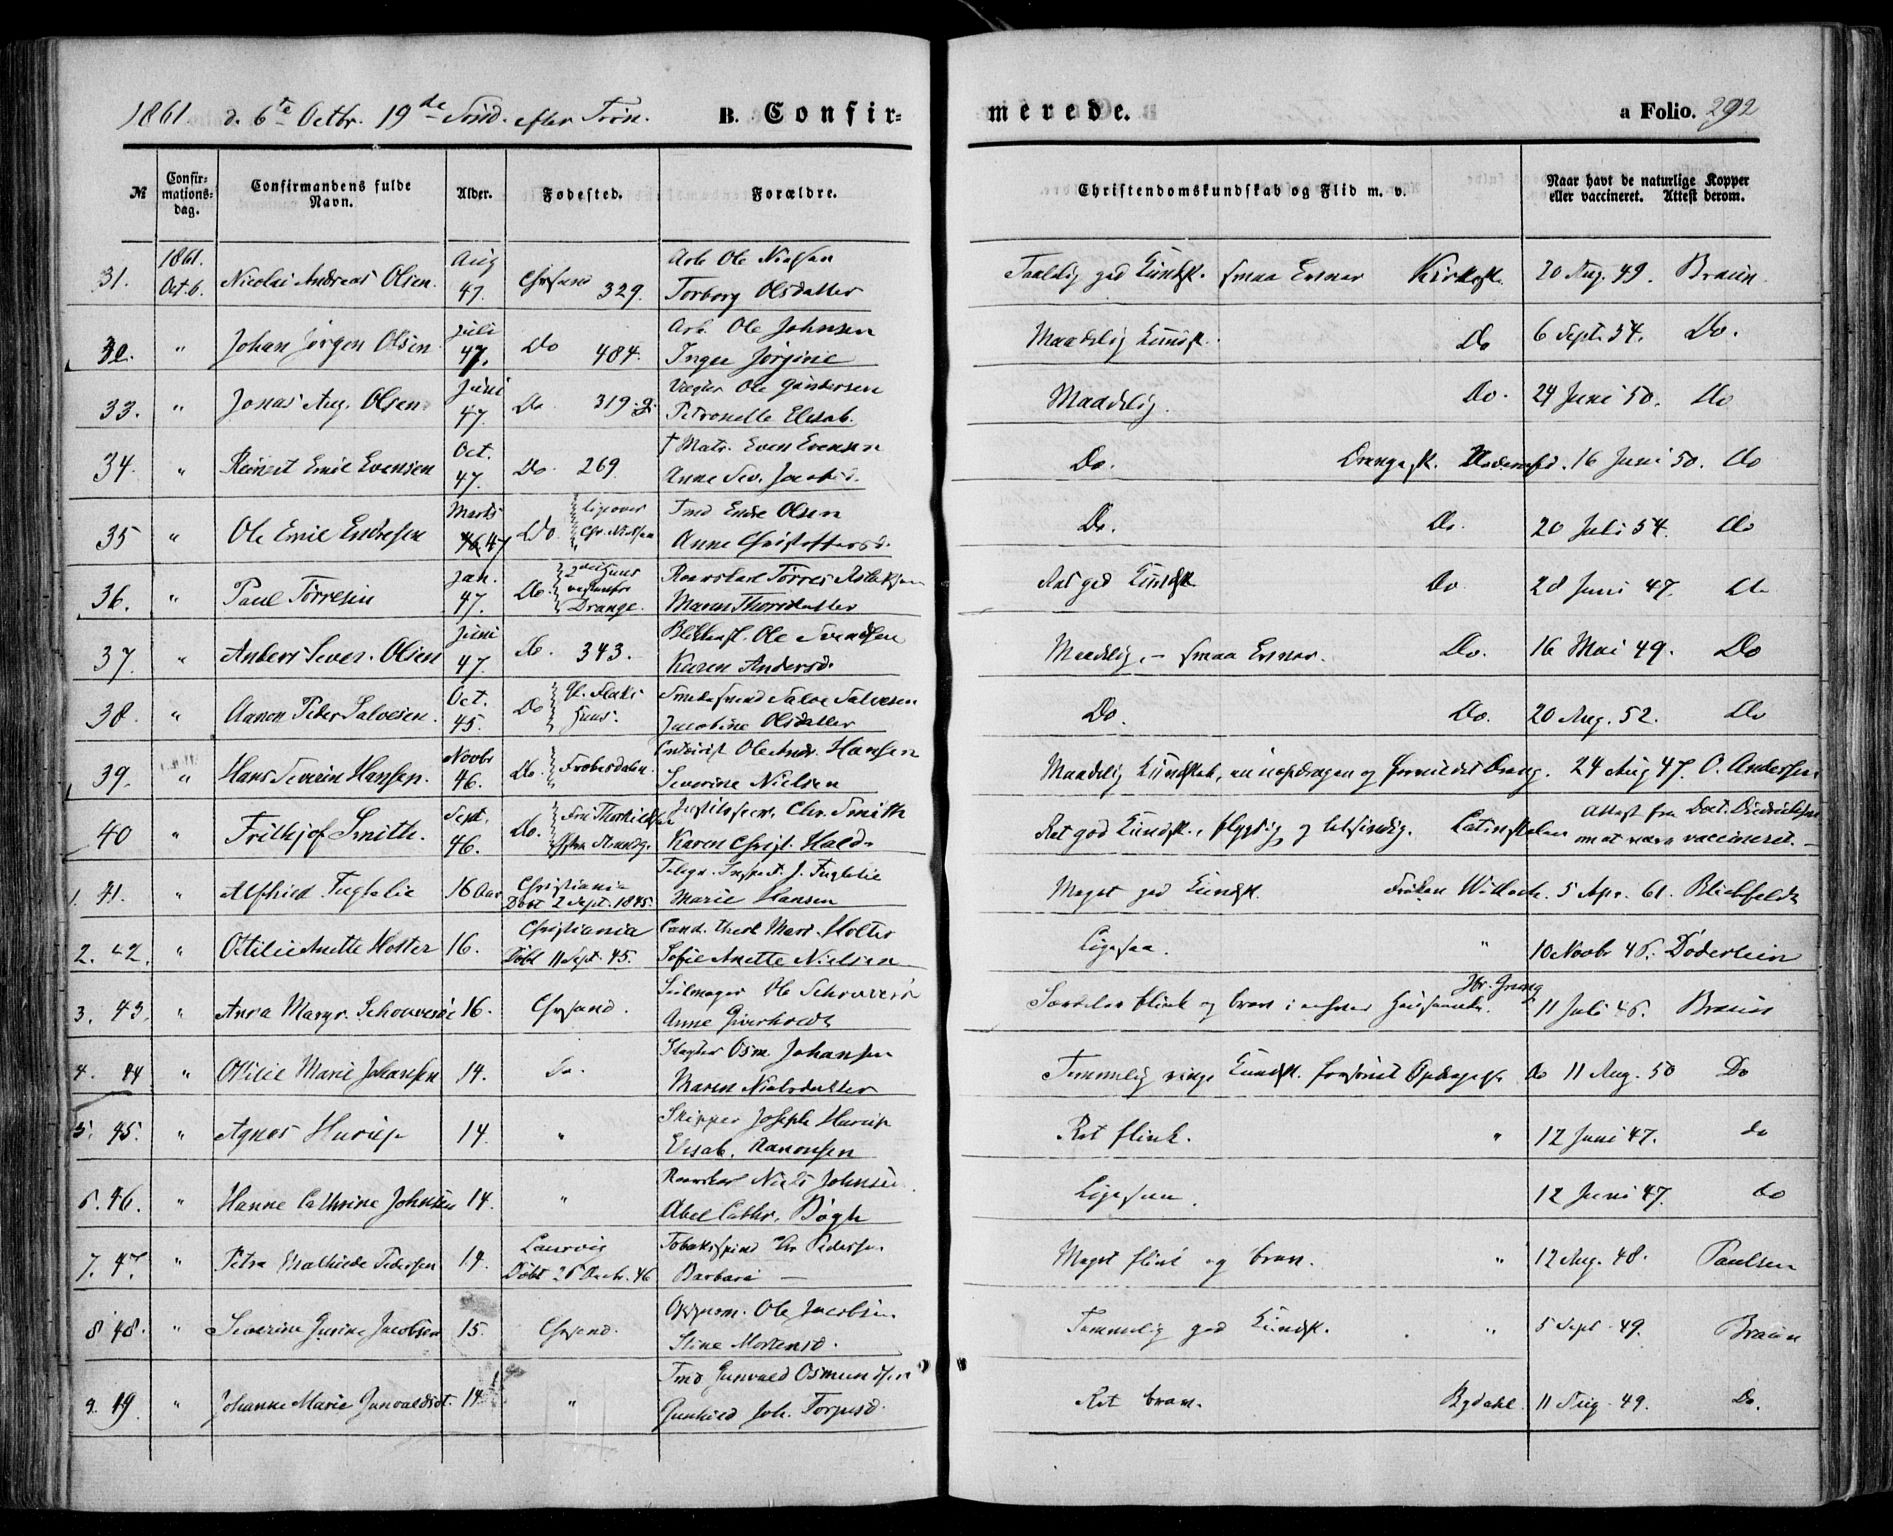 1861 d. 6te Octbr. 19de Sønd. efter Trin. B. Confir- merede. a Folio. 292
№ Confirmationsdag. Confirmandens fulde Navn. Alder. Fødested. Forældre. Christendomskundskab og Flid m. v. Naar havt de naturlige Kopper eller vaccineret. Attest derom.
31. 1861. Oct. 6. Nicolai Andreas Olsen. Aug 47. Chrsand 329. Arb. Ole Nielsen Torborg Olsdatter Taalelig god Kundsk. smaa Evner Kirkesk. 20 Aug. 49. Braun.
32. " Johan Jørgen Olsen Juli 47. Do 484. Arb. Ole Johnsen Inger Jørgine Maadelig Kundsk. Do 6 Sept. 54. Do.
33. " Jonas Aug. Olsen. Juni 47. Do 319. Vægter Ole Gundersen Petronelle Elisab. Maadelig. Do. 24 Juni 50. Do
34. " Reinert Emil Evensen Oct. 47. Do 269. † Matr. Even Evensen Anne Sev. Jacobsd. Do. Drangesk. 16 Juni 50. Do
35 " Ole Emil Endresen Marts 47 Do. ligeover Chr. Nielsen Tmd Endre Olsen Anne Christoffersd. Do. Do. 20 Juli 54. Do
36. " Paul Tørresen Jan. 47. Do. Drange. Tørres Maren Thorsdatter Ret god Kundsk. Do 28 Juni 47. Do
37. " Anders Sever. Olsen Juni 47. Do. 343. Ole Svendsen Karen Andersd. Maadelig, – smaa Evner. Do. 16 Mai 49. Do
38. " Aanon Peder Salvesen. Oct. 45. Do Huus. Smedesvend Salve Salvesen Jacobine Olsdatter Do. Do. 20 Aug. 52. Do
39. " Hans Severin Hansen. Novbr 46. Do. Frobusdalen. Ole Andr. Hansen Severine Nielsen Maadelig Kundskab, en uopdragen og Dreng. 24 Aug 47. O. Andersen
40 " Frithjof Smith. Sept. 46. Do. Chr. Smith Karen Christ. Hald. Ret god Kundsk., flygtig og letsindig. Latinskolen Attest fra Doct. Diedrichsen om at være vaccineret.
1. 41. " Alfhild Fuglelie 16 Aar Christiania Døbt 2 Sept. 1845. Telegr. Inspect. J. Fuglelie Marie Hansen Meget god Kundsk. Frøken Willoch. 5 Apr. 61. Blichfeldt
2. 42. " Ottilie Anette Holter 16. Christiania Døbt 11 Sept. 45. Cand. theol. Mart. Holter Sofie Anette Nielsen Ligesaa. " 10 Novbr 45. Døderlein
3. 43. " Anna Margr. Schouverøe 16. Chrsand. Seilmager Ole Schouverøe Anne Giverholdt Særdeles flink og brav i enhver Henseende. Hr. Jrung 11 Juli 46. Braun
4. 44 " Ottilie Marie Johansen 14. Do. Slagter Osm. Johansen Maren Nielsdatter Temmelig ringe Kundsk. forsømt Opdragelse do 11 Aug. 50 Do
5. 45. " Agnes Hurup 14. " Skipper Joseph Hurup Elisab. Aanonsen Ret flink. " 12 Juni 47. do
6. 46. " Hanne Cathrine Johnsen 14. " Niels Johnsen Abel Cathr. Bøgh Ligesaa. 12 Juni 47. do
7. 47. " Petra Mathilde Pedersen 14. Laurvig Døbt 26 Decbr. 46 Tobaksspind. Chr Pedersen Barbara — Meget flink og brav. " 12 Aug. 48. Paulsen
8. 48. " Severine Gurine Jacobsen 15. Chrsand. Opsynsm. Ole Jacobsen Stine Mortensd. Temmelig god Kundsk. " 5 Sept. 49. Braun
9. 49. " Johanne Marie Gunvaldsd. 14. " Tmd Gunvald Osmundsen Gunhild Joh. Torjusd. Ret brav. Bydahl. 11 Aug. 49. Do.